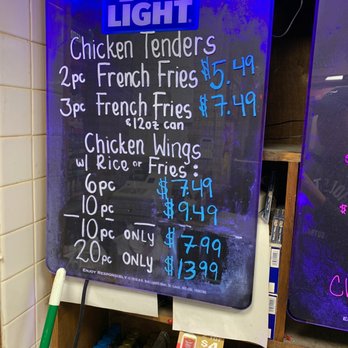 LIGHT
Chicken Tenders
2pc French Fries $5.49
3pc French Fries $7.49
&12oz can
Chicken Wings
w/ Rice or Fries:
6pc $7.49
10pc $9.49
10pc ONLY $7.99
20pc ONLY $1399
ENJOY RESPONSIBLY
$4